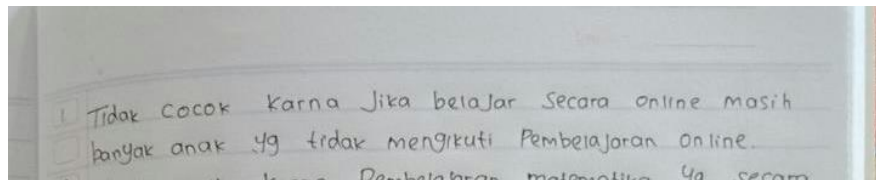 1 Tidak cocok karna Jika belajar secara online masih
banyak anak yg tidak mengikuti Pembelajaran online.
Pembelajaran matematika yg secara